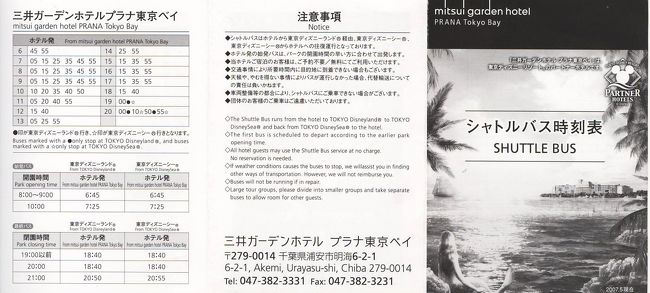 三井ガーデンホテルプラナ東京ベイ
mitsui garden hotel PRANA Tokyo Bay
ホテル発
From mitsui garden hotel PRANA Tokyo Bay
6 45 55 14 25 55
7 05 15 25 35 45 55 15 15 35 55
8 05 15 25 35 45 55 16 15 35 55
9 05 15 25 35 45 55 17 15 35 55
10 10 20 35 40 50 18 15 40
11 05 20 40 55 19 00●
12 15 40 20 00●10☆50☆55●
13 05 25 55
●印が東京ディズニーランド®行き、☆印が東京ディズニーシー®行きとなります。
Buses marked with a ●only stop at TOKYO Disneyland®, and buses
marked with a ☆only stop at TOKYO DisneySea®.
東京ディズニーランド® 東京ディズニーシー®
開園時間 ホテル発 ホテル発
Park opening time From mitsui garden hotel PRANA Tokyo Bay From mitsui garden hotel PRANA Tokyo Bay
8:00〜9:00 6:45 6:45
10:00 7:25 7:25
東京ディズニーランド® 東京ディズニーシー®
From TOKYO Disneyland® From TOKYO DisneySea®
閉園時間 ホテル発 ホテル発
Park closing time From mitsui garden hotel PRANA Tokyo Bay From mitsui garden hotel PRANA Tokyo Bay
19:00以前 18:40 18:40
20:00 18:40 18:40
21:00 20:50 20:55
注意事項
Notice
◆シャトルバスはホテルから東京ディズニーランド®経由、東京ディズニーシー®、
東京ディズニーシー®からホテルへの往復運行となっております。
◆ホテル発の始発バスは、パークの開園時間の早い方に合わせて出発します。
◆当ホテルご宿泊のお客様は、ご予約不要/無料にてご利用いただけます。
◆交通事情により所要時間内に目的地に到着できない場合もございます。
◆天候や、やむを得ない事情によりバスが運行しなかった場合、代替輸送について
の責任は負いかねます。
◆車両整備等の都合により、シャトルバスにご乗車できない場合がございます。
◆団体のお客様のご乗車はご遠慮いただいております。
◇The Shuttle Bus runs from the hotel to TOKYO Disneyland® to TOKYO
DisneySea® and back from TOKYO DisneySea® to the hotel.
◇The first bus is scheduled to depart according to the earlier park
opening time.
◇All hotel guests may use the Shuttle Bus service at no charge.
No reservation is needed.
◇If weather conditions causes the buses to stop, we willassist you in finding
other ways of transportation. However, we will not reimburse you.
◇Buses will not be running if in repair.
◇Large tour groups, please divide into smaller groups and take separate
buses to allow room for other guests.
三井ガーデンホテル プラナ東京ベイ
〒279-0014 千葉県浦安市明海6-2-1
6-2-1, Akemi, Urayasu-shi, Chiba 279-0014
Tel: 047-382-3331 Fax: 047-382-3231
mitsui garden hotel
PRANA Tokyo Bay
「三井ガーデンホテル プラナ東京ベイ」は
東京ディズニーリゾート®・パートナーホテルです。
PARTNER
HOTELS
シャトルバス時刻表
SHUTTLE BUS
2007.5現在